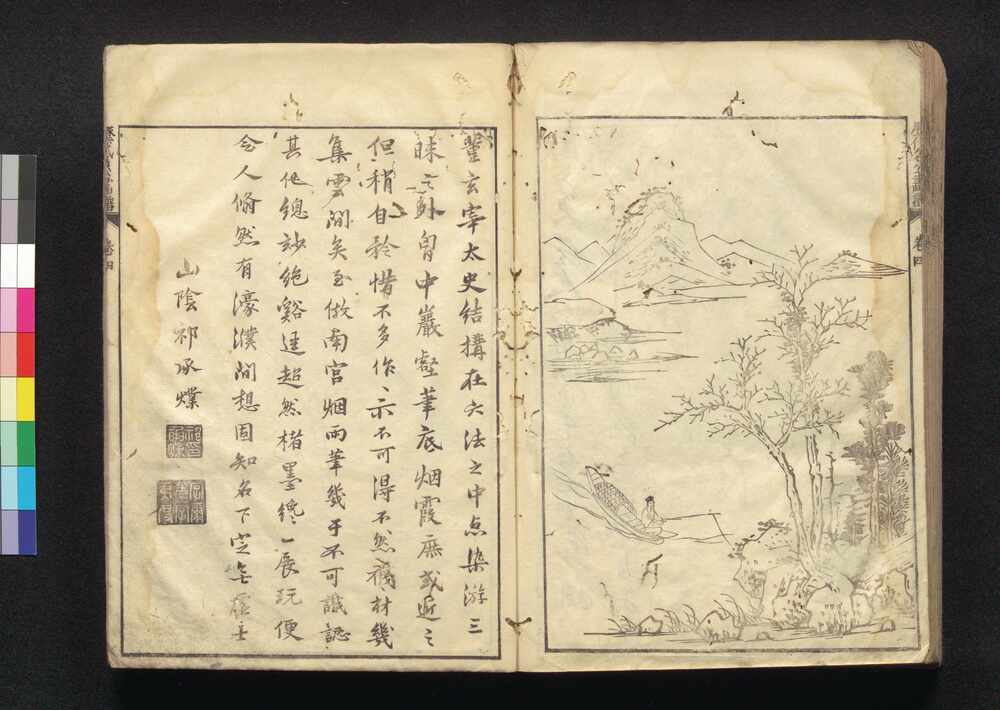 董玄宰太史結搆在六法之中点染游三
昧之外胷中巖壑筆底烟霞庶或近之
但稍自矜惜不多作亦不可得不然襪材幾
集雲間矣至倣南宮烟雨筆幾于不可識認
其他總訬絶谿逕超然楮墨纔一展玩便
令人翛然有濠濮間想固知名下定無虛士
山陰祁承㸁
卷四